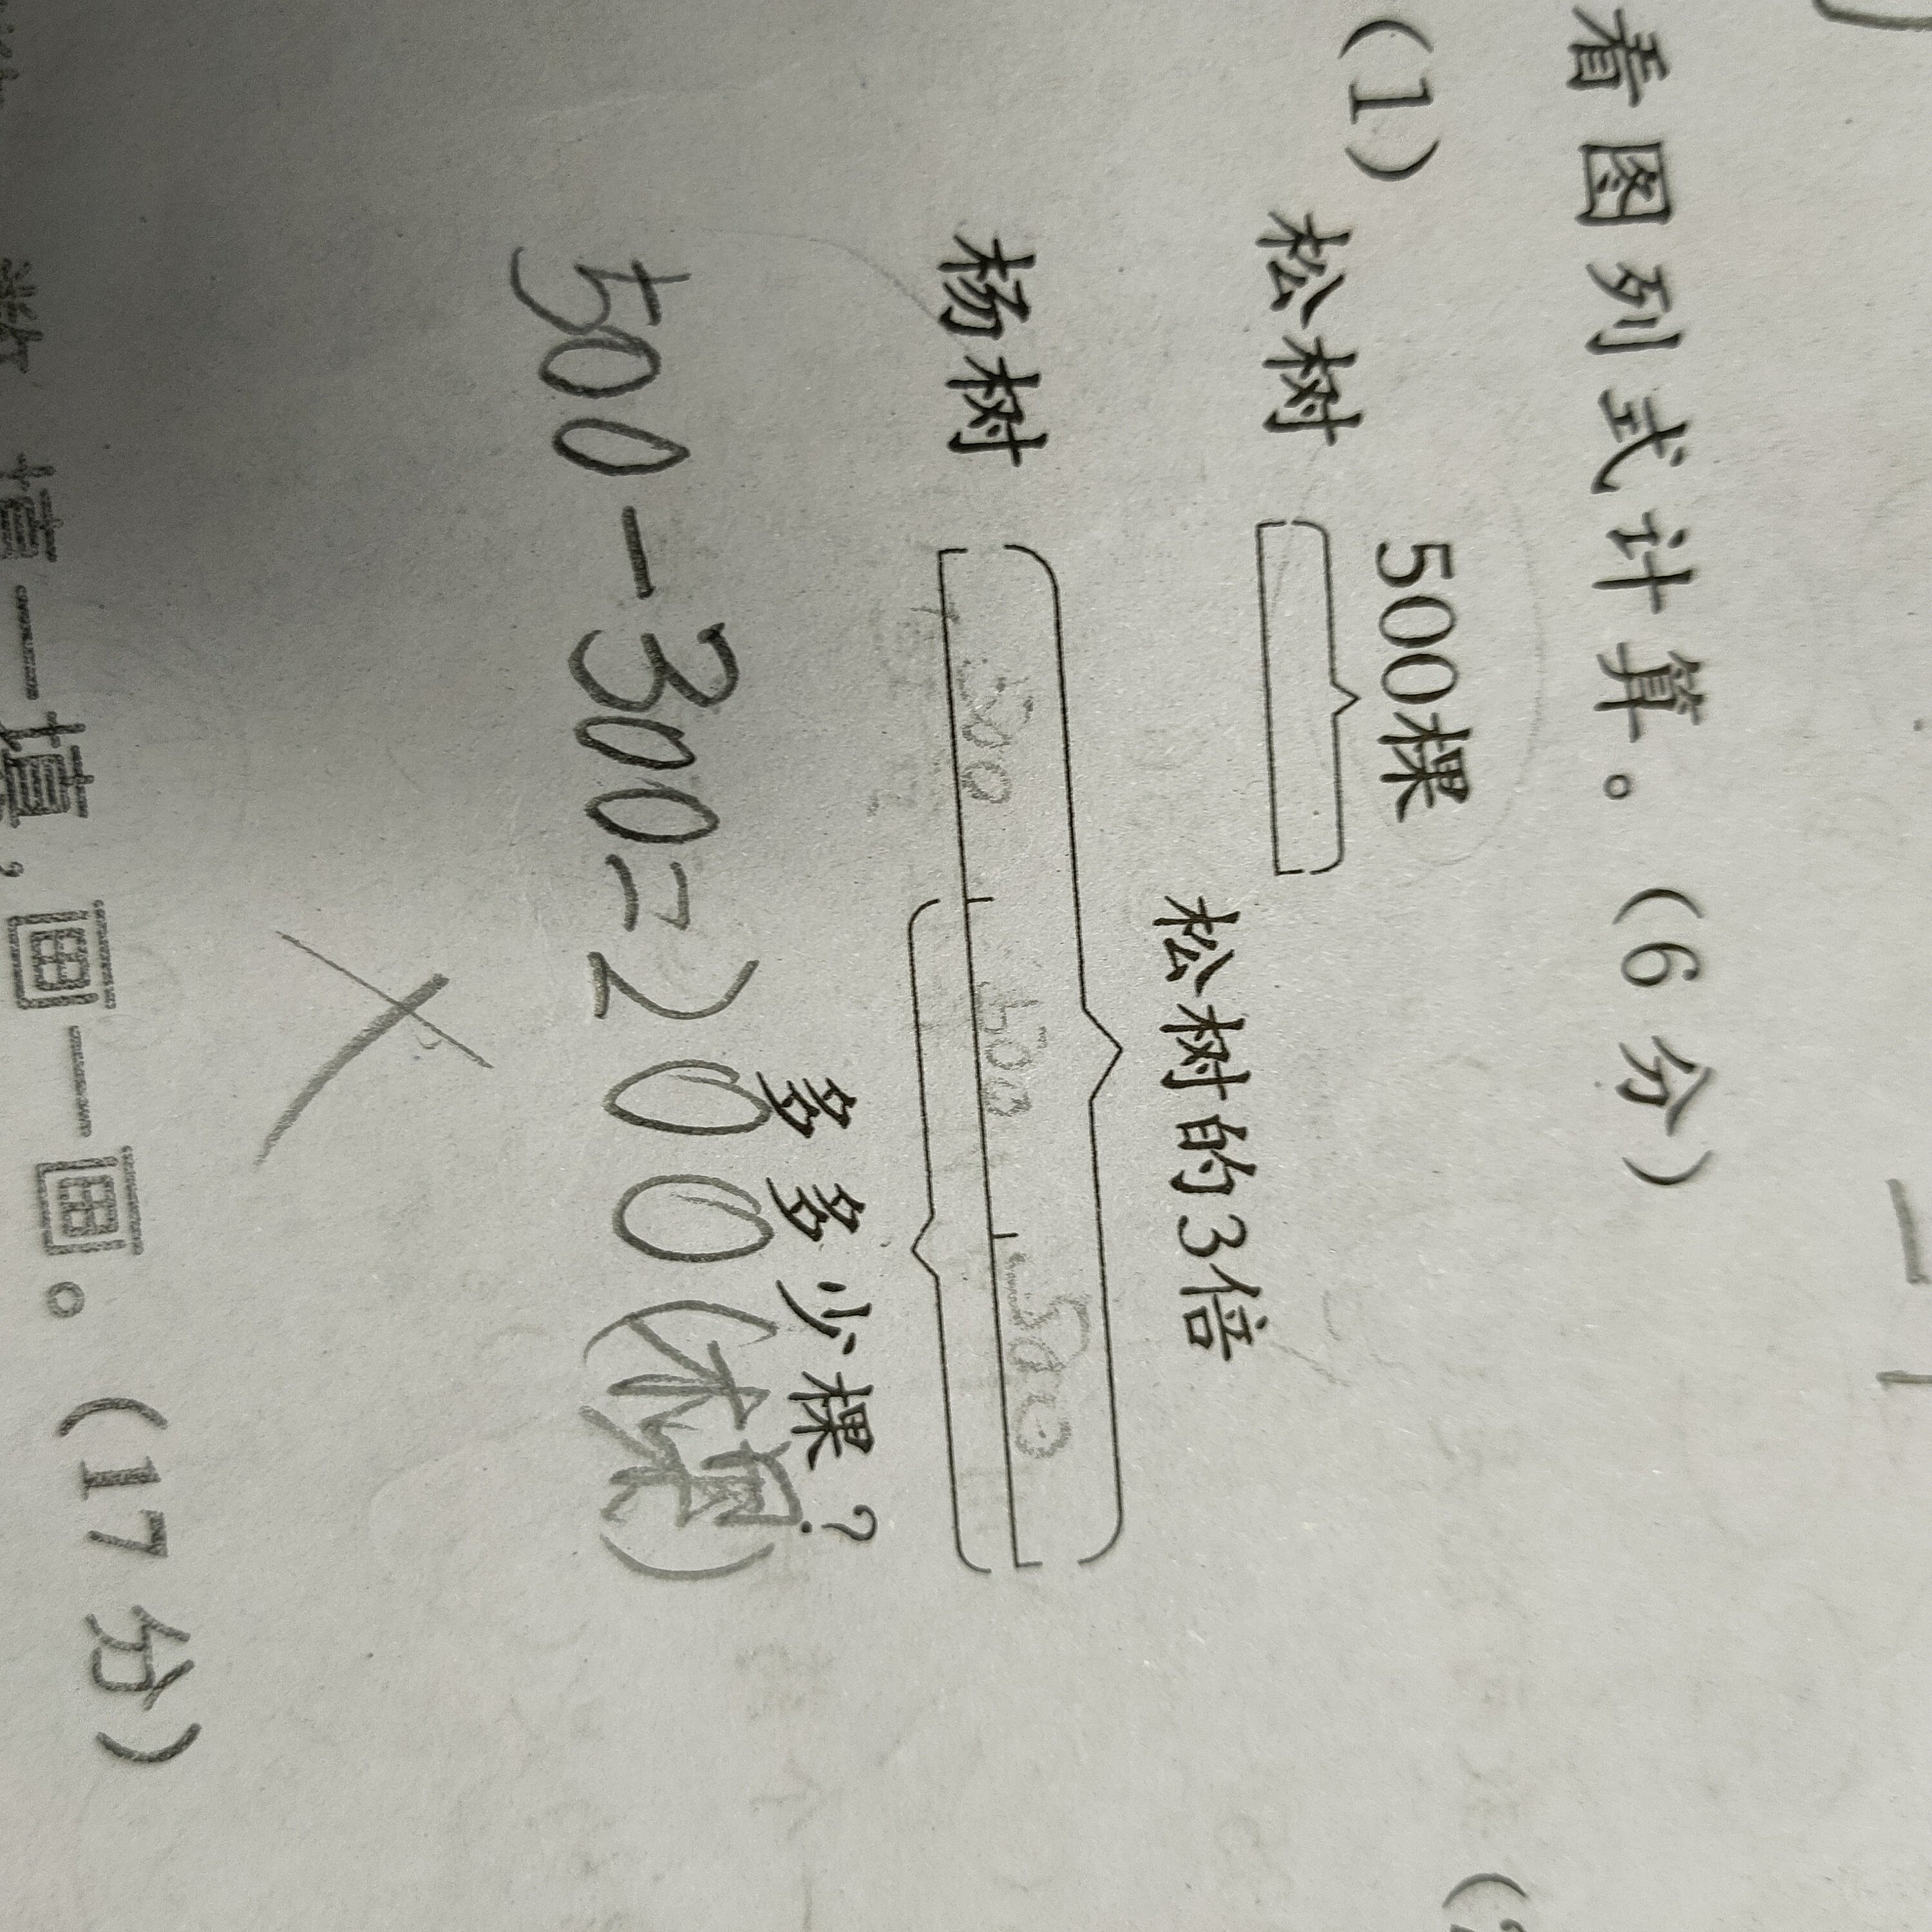 看图列式计算。（6分）
（1）
500棵
松树
松树的3倍
杨树
500 500 500
多多少棵？
500-300=200(棵)
填一填，画一画。（17分）